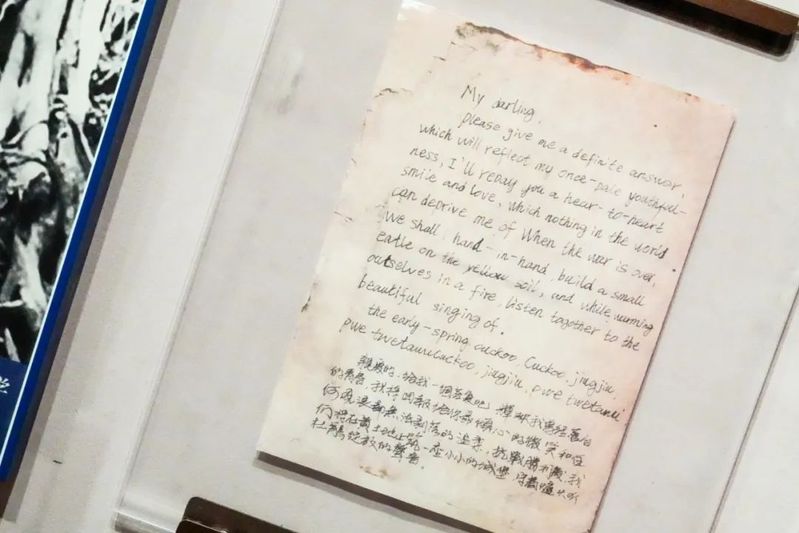 My darling,
please give me a definite answer,
which will reflect my once-pale youthful-
ness, I'll repay you a hear-to-heart
smile and love, which nothing in the world
can deprive me of When the war is over,
We shall, hand-in-hand, build a small
catle on the yellow soil, and while warming
outselves in a fire, listen together to the
beautiful singing of.
the early-spring cuckoo, Cuckoo, jiugjiu,
pwe
親愛的, 給我一個答案吧, 輝映我曾經蒼白
的青春, 我將回報給你最傾心的微笑和任
何 都無法剝落的溫柔, 抗戰勝利後, 我
們將在黃土地上築一座小小的城堡, 守着爐火听
杜鵑綻放的聲音.